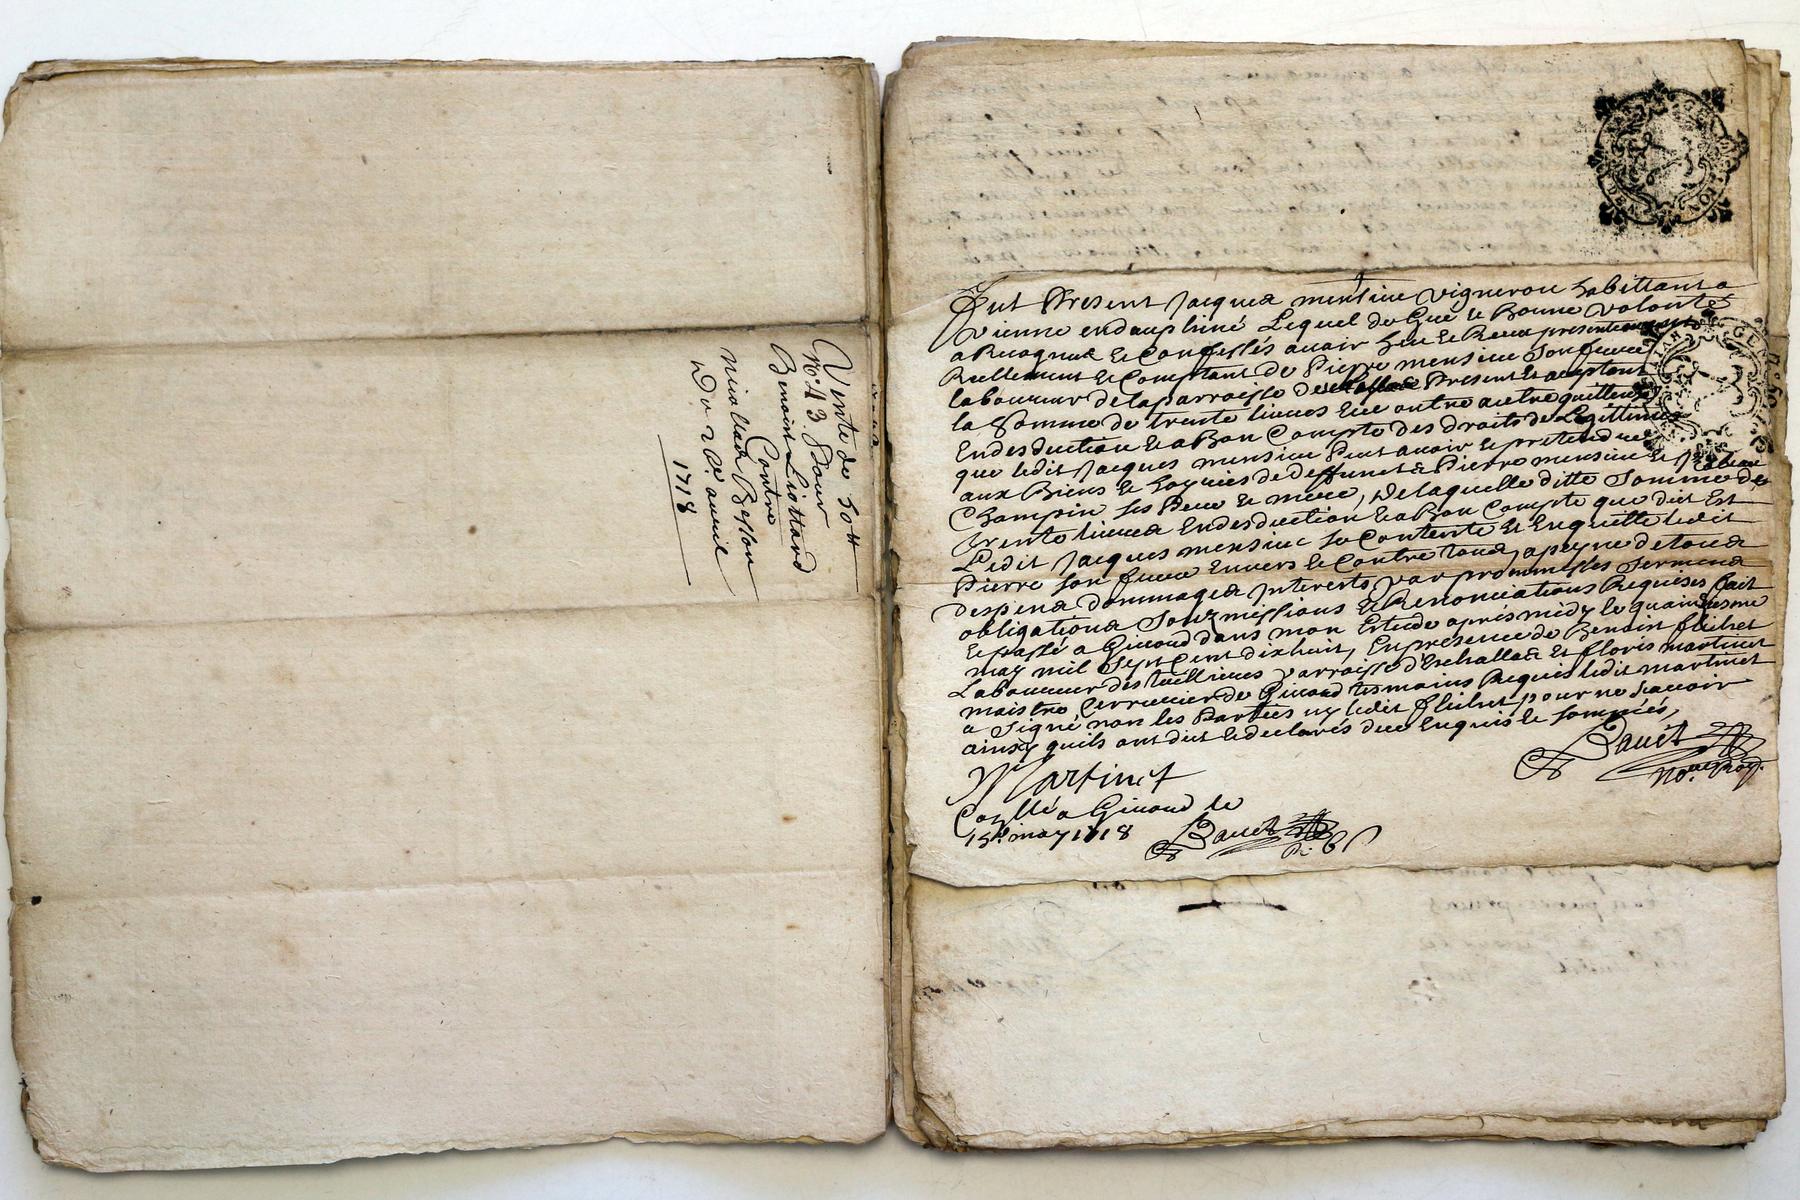 Vente de 50#
N.° 43. pour
Benoist Liottard
Contre
nicollas Besson
Du 2e. auril
1718
Fut Present Jacques mensiue vigneron habittant a
vienne en dauphiné Lequel de Gué le Bonne volonté
a Recognus Et Confessés auoir heu Et Receu presentement
Reellement Et Comptant de Pierre mensiue son frere
laboureur de la parroisse Present Et aceptant
la Somme de trente liures Lue outre autre quittence
En desduction Et a Bon Compte des droits de Legittime
que ledit Jacques mensiue Peut auoir Et pretendre
aux Biens Et hoyries de deffuncts Pierre mensiue Et
Champin ses Pere Et mere, de laquelle ditte Somme de
trente liures En desduction Et a Bon Compte que dict Est
Ledit Jacques mensiue se Contente Et Enquitte ledit
Pierre son frere Enuers Et Contre tous, a peyne de tous
despens dommages Interests par prommesses Serments
obligations Soubmissions Et Renonciations Requises fait
Et passé a Giuord dans mon Estude aprés midy le quinziesme
may mil Sept Cent dixhuit, En presence de Benoist flichet
Laboureur des tuillieres parroisse d'Eschallas Et floris martinet
maistre Verrurier de Giuord tesmoins Requis ledit martinet
a Signé non les Parties ny ledit flichet pour ne scauoir
ainsy quils ont dict Et declarés de ce Enquis Et sommés,
Martinet
Bauet
No.re Roy.
Conllé a Giuord le
15e. may 1718
Bauet